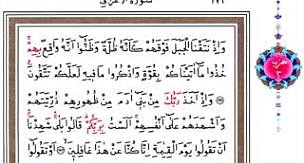 سورة الأعراف ١٧٣
وَإِذْ نَتَقْنَا الْجَبَلَ فَوْقَهُمْ كَأَنَّهُ ظُلَّةٌ وَظَنُّوا أَنَّهُ وَاقِعٌ بِهِمْ
خُذُوا مَا آتَيْنَاكُم بِقُوَّةٍ وَاذْكُرُوا مَا فِيهِ لَعَلَّكُمْ تَتَّقُونَ
وَإِذْ أَخَذَ رَبُّكَ مِن بَنِي آدَمَ مِن ظُهُورِهِمْ ذُرِّيَّتَهُمْ
وَأَشْهَدَهُمْ عَلَى أَنفُسِهِمْ أَلَسْتُ بِرَبِّكُمْ قَالُوا بَلَى شَهِدْنَا
أَن تَقُولُوا يَوْمَ الْقِيَامَةِ إِنَّا كُنَّا عَنْ هَذَا غَافِلِينَ أَوْ تَقُولُوا